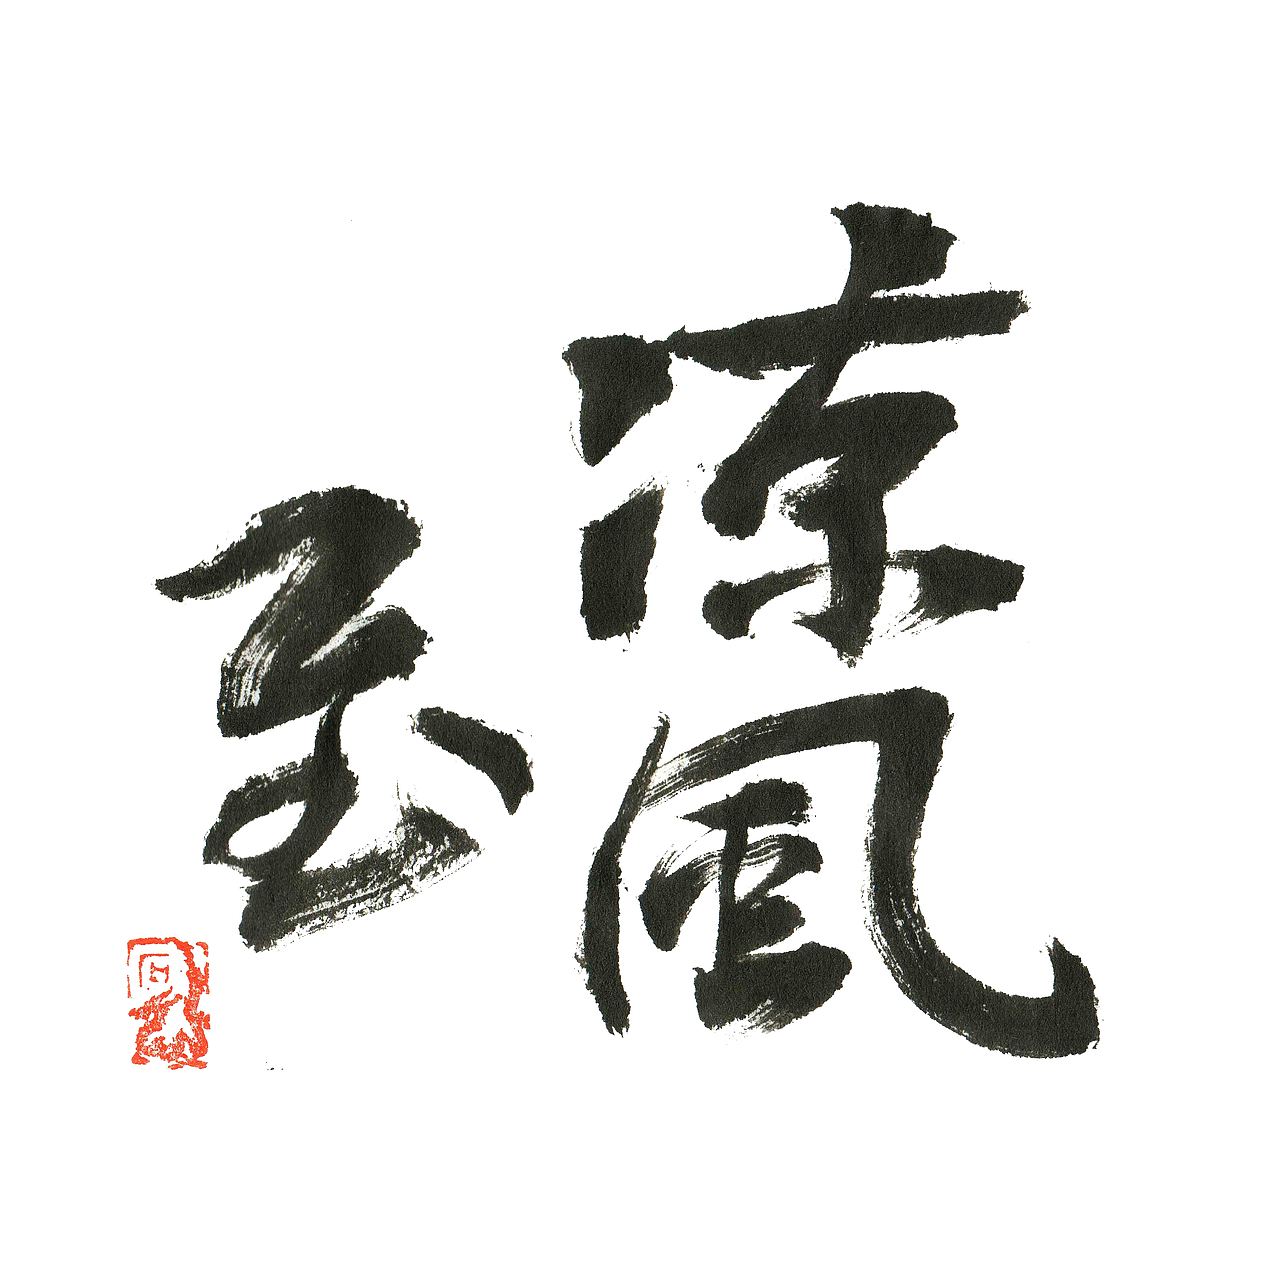 涼風
至